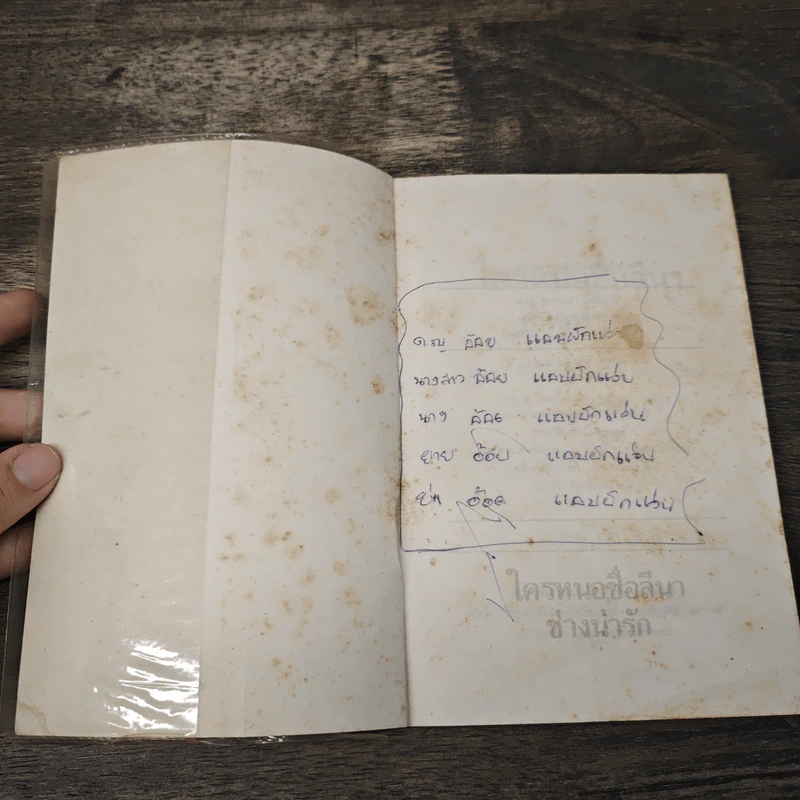 ด.ญ อ้อย แอบผักแว่น
นางสาว อ้อย แอบผักแว่น
นาง อ้อย แอบผักแว่น
ยาย อ้อย แอบผักแว่น
ย่า อ้อย แอบผักแว่น
ใครหนอชื่อลีนา
ช่างน่ารัก